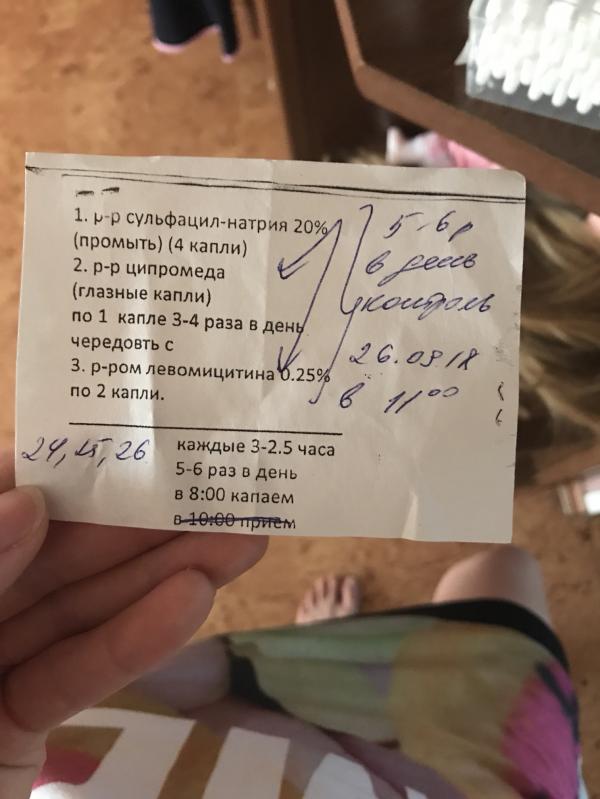 1. р-р сульфацил-натрия 20%
(промыть) (4 капли)
2. р-р ципромеда
(глазные капли)
по 1 капле 3-4 раза в день
чередовть с
3. р-ром левомицитина 0.25%
по 2 капли.
5-6р
в день
контроль
26.09.18
в 11⁰⁰
24, 25, 26
каждые 3-2.5 часа
5-6 раз в день
в 8:00 капаем
в 10:00 прием